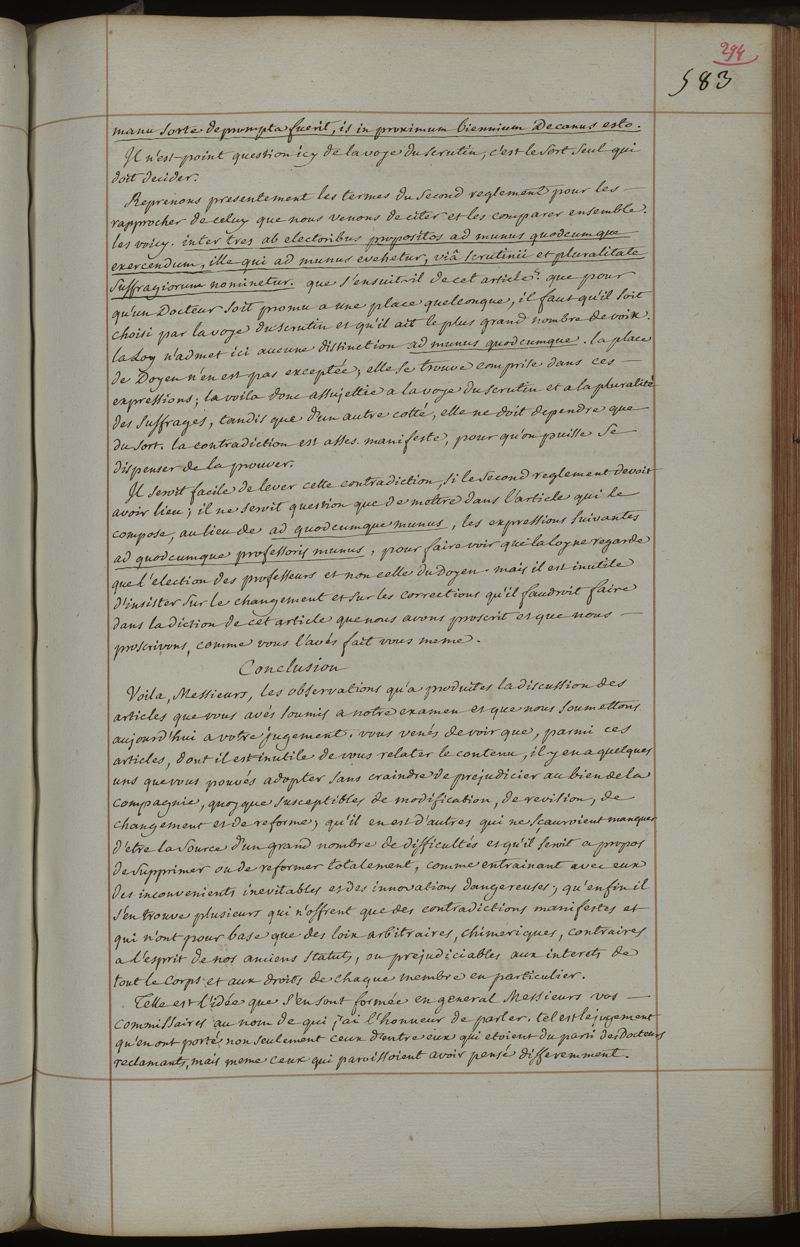 294
583
manu sorte deprompta fuerit, is in proximum biennium Decanus esto.
Il n'est point question icy de la voye du scrutin, c'est le sort seul qui
doit decider.
Reprenons presentement les termes du second reglement pour les
rapprocher de celuy que nous venons de citer et les comparer ensemble.
les voicy. inter tres ab electoribus propositos ad munus quodcumque
exercendum, ille qui ad munus evehetur, viâ scrutinii et pluralitate
suffragiorum nominetur. que s'ensuit-il de cet article? que pour
qu'un Docteur soit promu a une place quelconque, il faut qu'il soit
choisi par la voye du scrutin et qu'il ait le plus grand nombre de voix.
la Loy n'admet ici aucune distinction ad munus quodcumque. la place
de Doyen n'en est pas exceptée; elle se trouve comprise dans ces
expressions; la voila donc assujettie a la voye du scrutin et a la pluralité
des suffrages, tandis que d'un autre cotté, elle ne doit dependre que
du sort. la contradiction est asses manifeste, pour qu'on puisse se
dispenser de la prouver.
Il seroit facile de lever cette contradiction, si le second reglement devoit
avoir lieu; il ne seroit question que de mettre dans l'article qui le
compose, au lieu de ad quodcumque munus, les expressions suivantes
ad quodcumque professoris munus, pour faire voir que la loy ne regarde
que l'election des professeurs et non celle du Doyen. mais il est inutile
d'insister sur le changement et sur les corrections qu'il faudroit faire
dans la diction de cet article que nous avons proscrit et que nous
proscrivons, comme vous l'avés fait vous meme.
Conclusion
Voila, Messieurs, les observations qu'a produites la discussion des
articles que vous avés soumis a notre examen et que nous soumettons
aujourd'hui a votre jugement. vous venés de voir que, parmi ces
articles, dont il est inutile de vous relater le contenu, il y en a quelques
uns que vous pouvés adopter sans craindre de prejudicier au bien de la
Compagnie, quoyque susceptibles de modification, de revision, de
changement et de reforme; qu'il en est d'autres qui ne sçauroient manquer
d'etre la source d'un grand nombre de difficultés et qu'il seroit a propos
de supprimer ou de reformer totalement, comme entrainant avec eux
des inconvenients inevitables et des innovations dangereuses; qu'enfin il
s'en trouve plusieurs qui n'offrent que des contradictions manifestes et
qui n'ont pour base que des loix arbitraires, chimeriques, contraires
a l'esprit de nos anciens Statuts, ou prejudiciables aux interets de
tout le Corps et aux droits de chaque membre en particulier.
Telle est l'idée que s'en sont formée en general Messieurs vos
Commissaires au nom de qui j'ai l'honneur de parler. tel est le jugement
qu'en ont porté, non seulement ceux d'entre eux qui etoient du parti des Docteurs
reclamants, mais meme ceux qui paroissoient avoir pensé differemment.